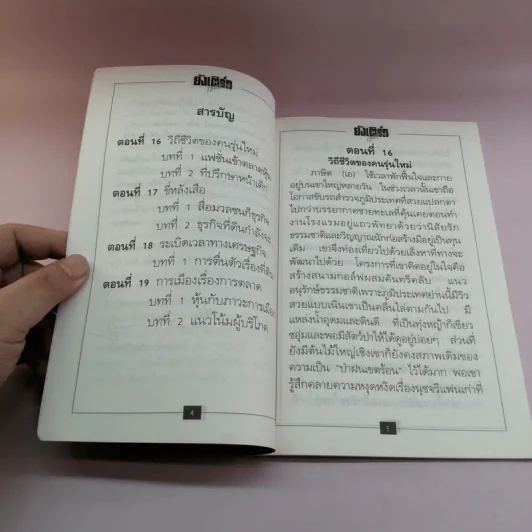 ยังเติร์ก
สารบัญ
ตอนที่ 16 วิถีชีวิตของคนรุ่นใหม่
บทที่ 1 แฟชั่นเข้าตลาดหุ้น
บทที่ 2 ที่ปรึกษาหน้าเด็ก
ตอนที่ 17 ขี่หลังเสือ
บทที่ 1 สื่อมวลชนกึ่งธุรกิจ
บทที่ 2 ธุรกิจที่ดินกำลัง
ตอนที่ 18 ระเบิดเวลาทางเศรษฐกิจ
บทที่ 1 การตื่นตัวเรื่องที่ดิน
ตอนที่ 19 การเมืองเรื่องการตลาด
บทที่ 1 หุ้นกับภาวะการเมือง
บทที่ 2 แนวโน้มผู้บริโภค
4
ยังเติร์ก
ตอนที่ 16
วิถีชีวิตของคนรุ่นใหม่
ภาษิต (เอ) ใช้เวลาพักฟื้นใจและกาย
อยู่บนเขาใหญ่หลายวัน ในช่วงเวลานั้นเขาถือ
โอกาสขับรถสำรวจภูมิประเทศที่สวยแปลกตา
ไปกว่าบรรยากาศชายทะเลที่คุ้นเคยตอนทำ
งานโรงแรมอยู่แถวพัทยาด้วยว่านิสัยรัก
ธรรมชาติและวิญญาณนักก่อสร้างมีอยู่เป็นทุน
เดิม เขาจึงท่องเที่ยวไปด้วยเล็งหาที่ทางจะ
พัฒนาไปด้วย โครงการที่เขาคิดอยู่ในใจคือ
สร้างสนามกอล์ฟผสมคันทรีคลับ แนว
อนุรักษ์ธรรมชาติเพราะภูมิประเทศย่านนี้มีวิว
สวยแบบเนินเขาเป็นคลื่นไล่ตามกันไป มี
แหล่งน้ำอุดมและดินดี ที่เป็นทุ่งหญ้าก็เขียว
ชอุ่มและพอมีสัตว์ป่าให้ได้ดูอยู่บ่อยๆ ส่วนที่
ยังมีต้นไม้ใหญ่เชิงเขาก็ยังคงสภาพเดิมของ
ความเป็น "ป่าฝนเขตร้อน" ไว้ได้มาก พอเขา
รู้สึกคลายความหงุดหงิดเรื่องนุชจรีแฟนเก่าที่
5